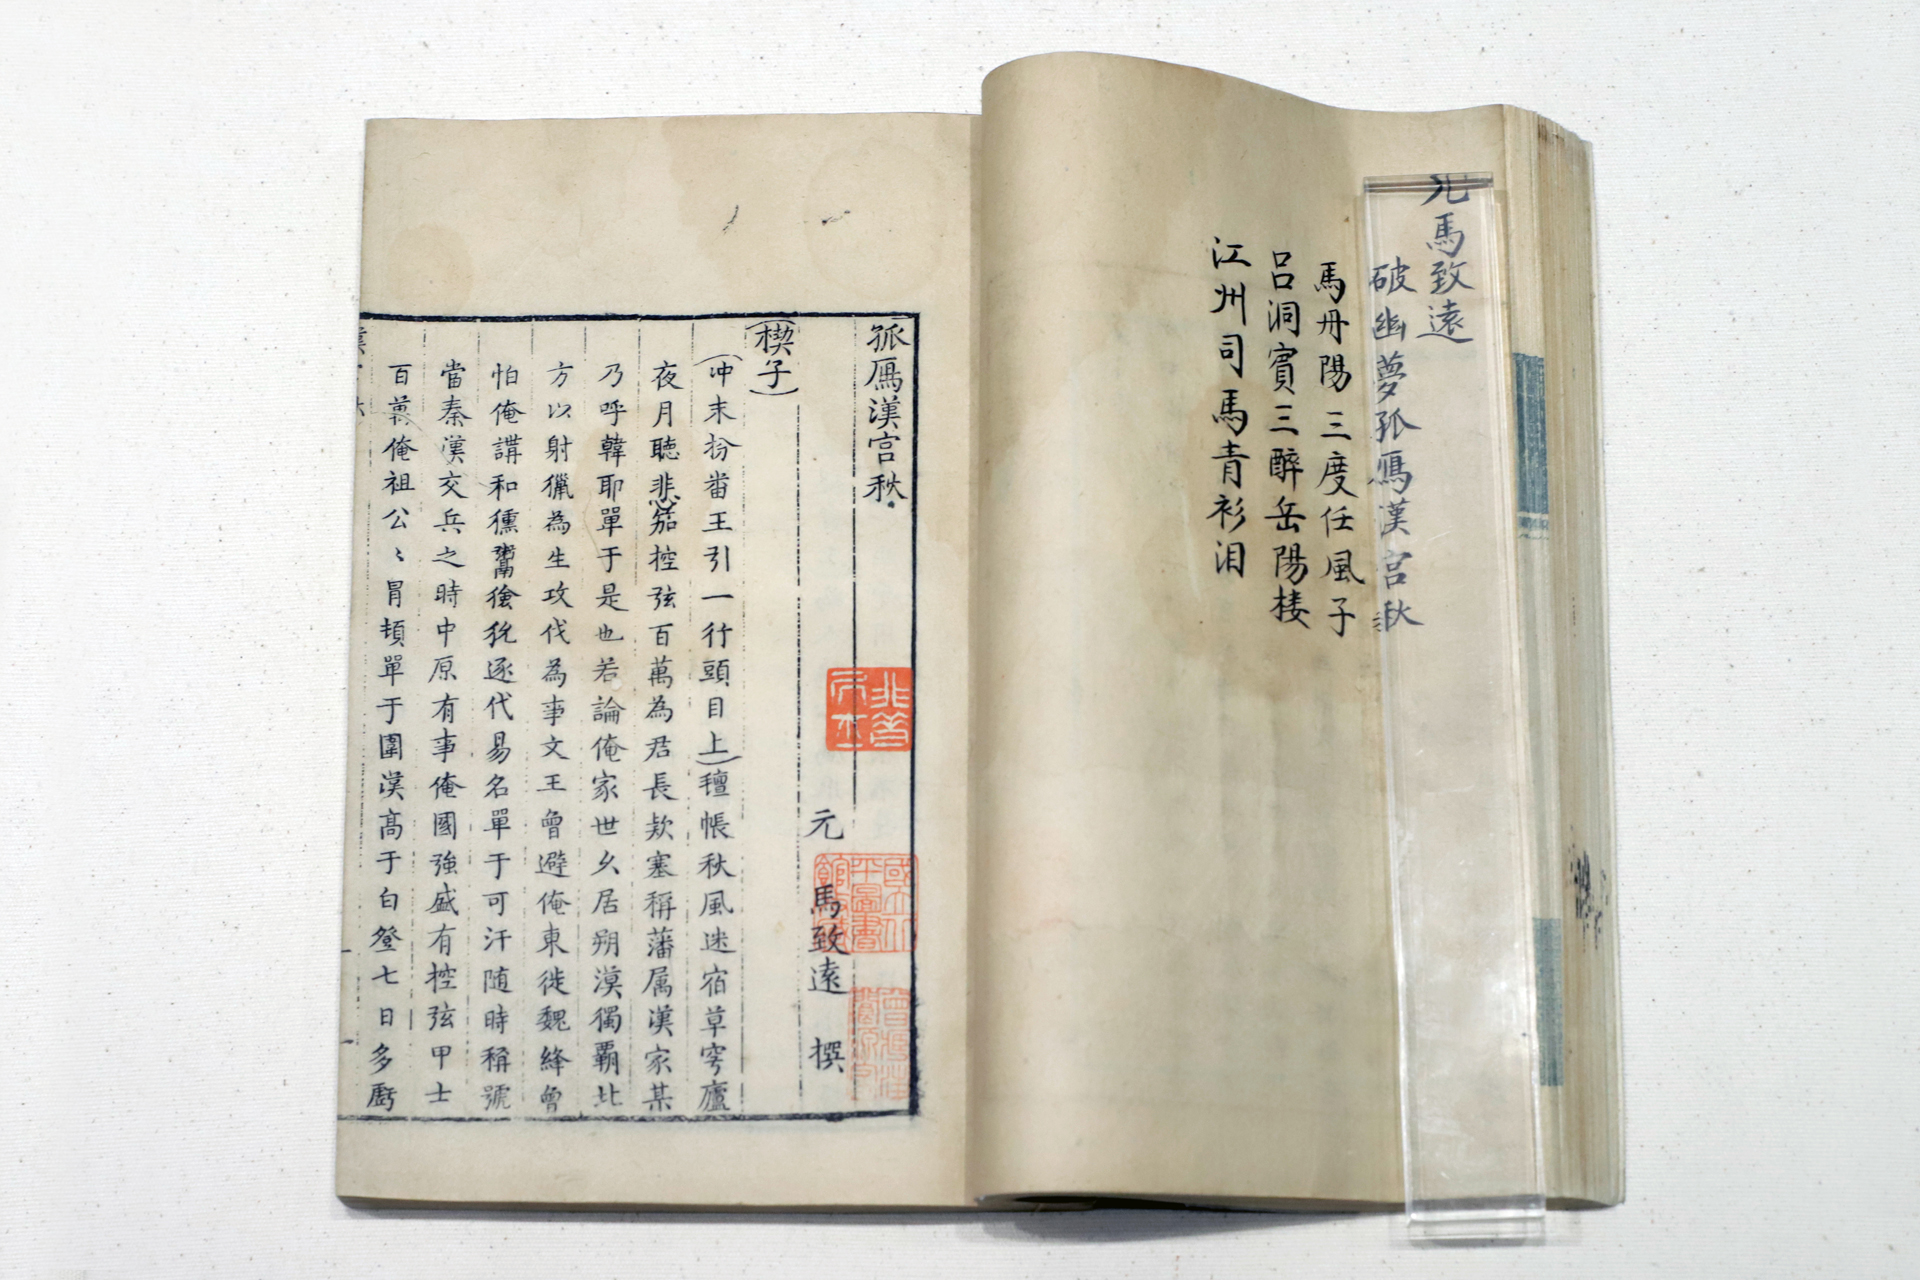 元馬致遠
破幽夢孤鴈漢宮秋
馬丹陽三度任風子
呂洞賓三醉岳陽楼
江州司馬青衫泪
孤鴈漢宮秋
元 馬致遠 撰
(楔子)
(冲末扮畨王引一行頭目上)氊帳秋風迷宿草穹廬
夜月聽悲笳控弦百萬為君長欵塞稱藩属漢家某
乃呼韓耶單于是也若論俺家世久居朔漠獨覇北
方以射獵為生攻伐為事文王曾避俺東徙魏絳曾
怕俺講和獯鬻獫狁逐代易名單于可汗随時稱號
當秦漢交兵之時中原有事俺國強盛有控弦甲士
百萬俺祖公〻冒頓單于圍漢高于白登七日多
國立北平圖書館